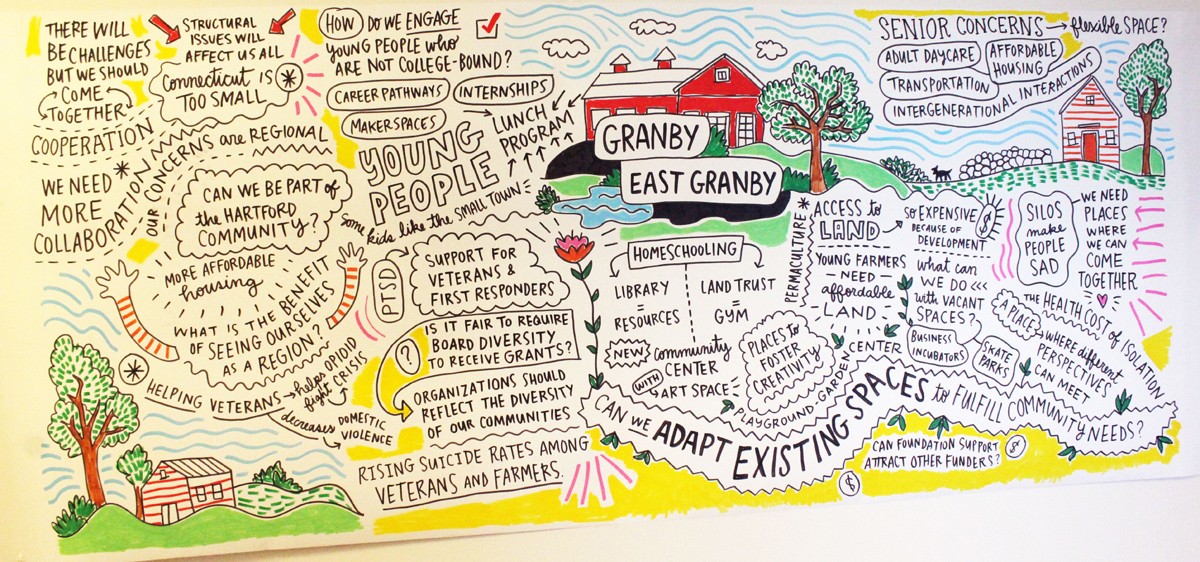 THERE WILL
BE CHALLENGES
BUT WE SHOULD
COME
TOGETHER
STRUCTURAL
ISSUES WILL
AFFECT US ALL
Connecticut IS
TOO SMALL
COOPERATION
WE NEED
MORE
COLLABORATION
OUR CONCERNS are REGIONAL
CAN WE BE PART of
the HARTFORD
COMMUNITY?
MORE AFFORDABLE
housing
WHAT IS THE BENEFIT
OF SEEING OURSELVES
AS A REGION?
HELPING VETERANS
helps OPIOID
fight CRISIS
decreases DOMESTIC
VIOLENCE
HOW DO WE ENGAGE
YOUNG PEOPLE who
ARE NOT COLLEGE-BOUND?
CAREER PATHWAYS
INTERNSHIPS
MAKERSPACES
LUNCH
PROGRAM
YOUNG
PEOPLE
Some kids like the SMALL TOWN
PTSD
SUPPORT FOR
VETERANS &
FIRST RESPONDERS
?
IS IT FAIR TO REQUIRE
BOARD DIVERSITY
TO RECEIVE GRANTS?
ORGANIZATIONS SHOULD
REFLECT THE DIVERSITY
OF OUR COMMUNITIES
RISING SUICIDE RATES AMONG
VETERANS AND FARMERS.
GRANBY
EAST GRANBY
HOMESCHOOLING
LIBRARY
=
RESOURCES
LAND TRUST
=
GYM
NEW community
CENTER
WITH ART SPACE
PLACES to
FOSTER
CREATIVITY
PLAYGROUND-GARDEN CENTER
PERMACULTURE
ACCESS to
LAND
SO EXPENSIVE
BECAUSE OF
DEVELOPMENT
$
YOUNG FARMERS
NEED
affordable
LAND
what can
WE DO
with VACANT
SPACES?
BUSINESS
INCUBATORS
SKATE
PARKS
SENIOR CONCERNS
flexible SPACE?
ADULT DAYCARE
AFFORDABLE
HOUSING
TRANSPORTATION
INTERGENERATIONAL INTERACTIONS
SILOS
make
PEOPLE
SAD
WE NEED
PLACES
WHERE
WE CAN
COME
TOGETHER
THE HEALTH COST of ISOLATION
A PLACE
WHERE different
PERSPECTIVES
CAN MEET
CAN WE ADAPT EXISTING SPACES to FULFILL COMMUNITY NEEDS?
CAN FOUNDATION SUPPORT
ATTRACT OTHER FUNDERS?
$
$